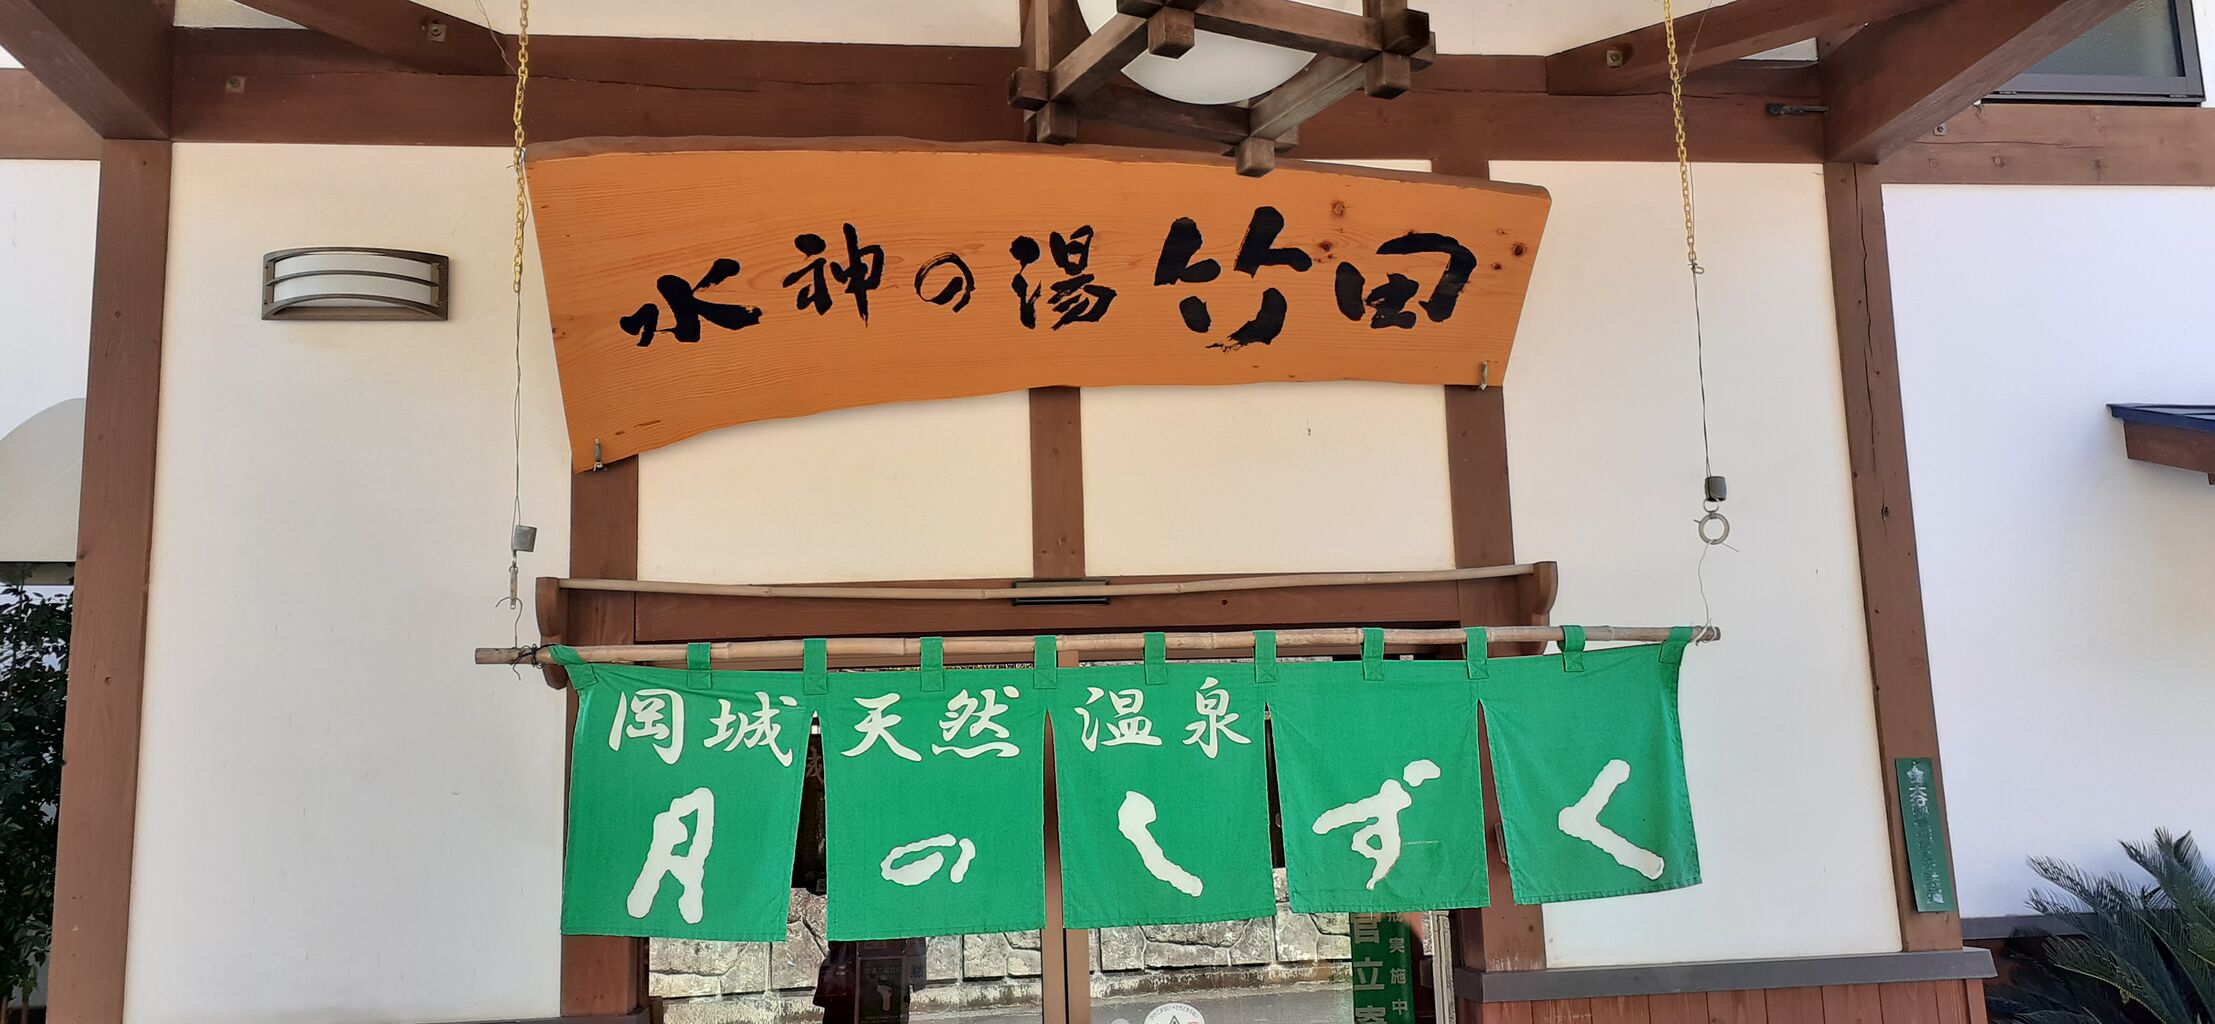 水神の湯 竹田
岡城天然温泉
月のしずく
実施中